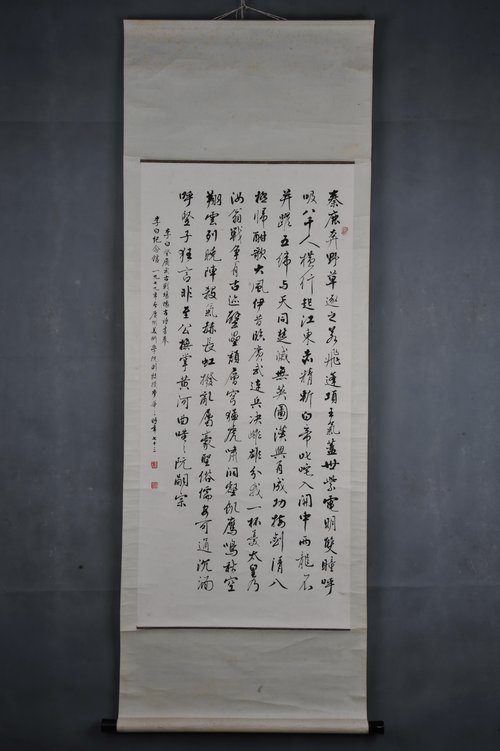 秦鹿奔野草逐之若飛蓬項王氣蓋世紫電明雙瞳呼
吸八千人橫行起江東赤精斬白帝叱咤入関中兩龍不
并躍五緯與天同楚滅無英圖漢興有成功按劍清八
極歸酣歌大風伊昔臨廣武連兵決雌雄分我一杯羹太皇乃
汝翁戰爭有古迹壁壘頹層穹猛虎嘯洞壑飢鷹鳴秋空
翔雲列曉陣殺氣赫長虹撥亂屬豪聖俗儒安可通沉湎
呼豎子狂言非至公撫掌黃河曲嗤々阮嗣宗
李白登廣武古戰場懷古詩書奉
李白紀念館 一九七九年 廣州美術學院副教授麥華三時年七十三